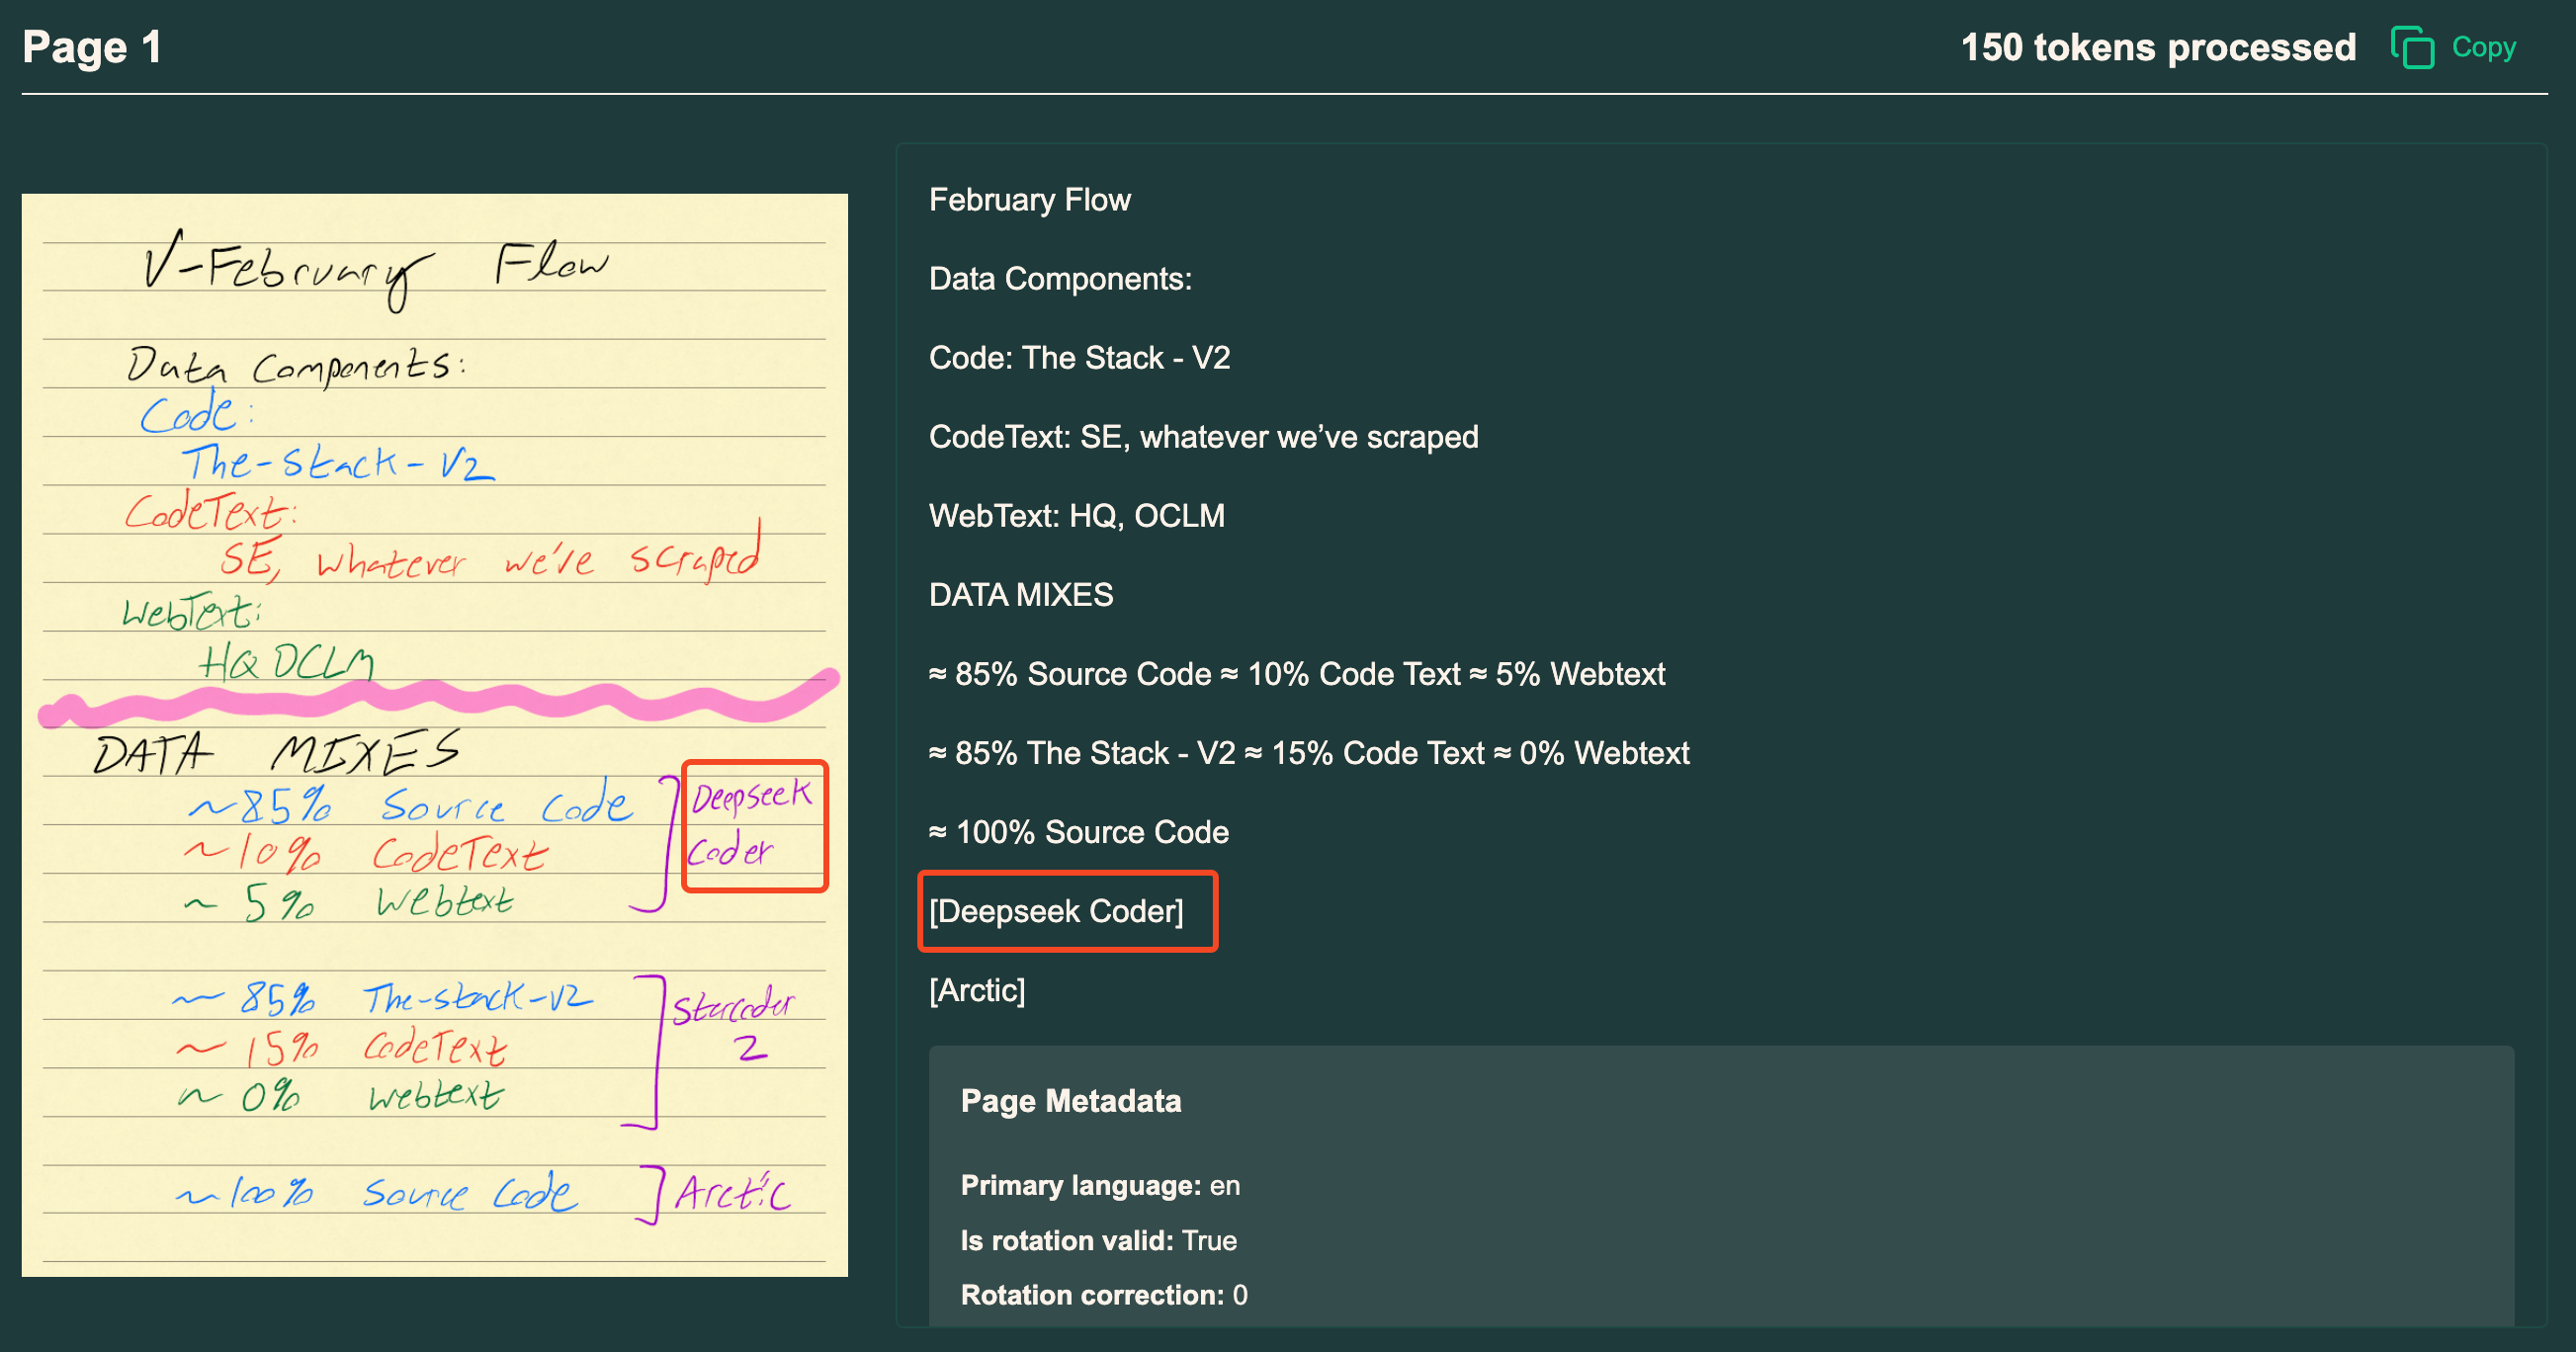 Page 1
150 tokens processed
Copy
V-February Flow
Data Components:
Code:
The-Stack-V2
CodeText:
SE, whatever we've scraped
WebText:
HQ DCLM
DATA MIXES
~85% Source Code
~10% CodeText
~ 5% Webtext
Deepseek
Coder
~ 85% The-stack-v2
~ 15% CodeText
~ 0% webtext
Starcoder
2
~100% Source Code
Arctic
February Flow
Data Components:
Code: The Stack - V2
CodeText: SE, whatever we’ve scraped
WebText: HQ, OCLM
DATA MIXES
≈ 85% Source Code ≈ 10% Code Text ≈ 5% Webtext
≈ 85% The Stack - V2 ≈ 15% Code Text ≈ 0% Webtext
≈ 100% Source Code
[Deepseek Coder]
[Arctic]
Page Metadata
Primary language: en
Is rotation valid: True
Rotation correction: 0